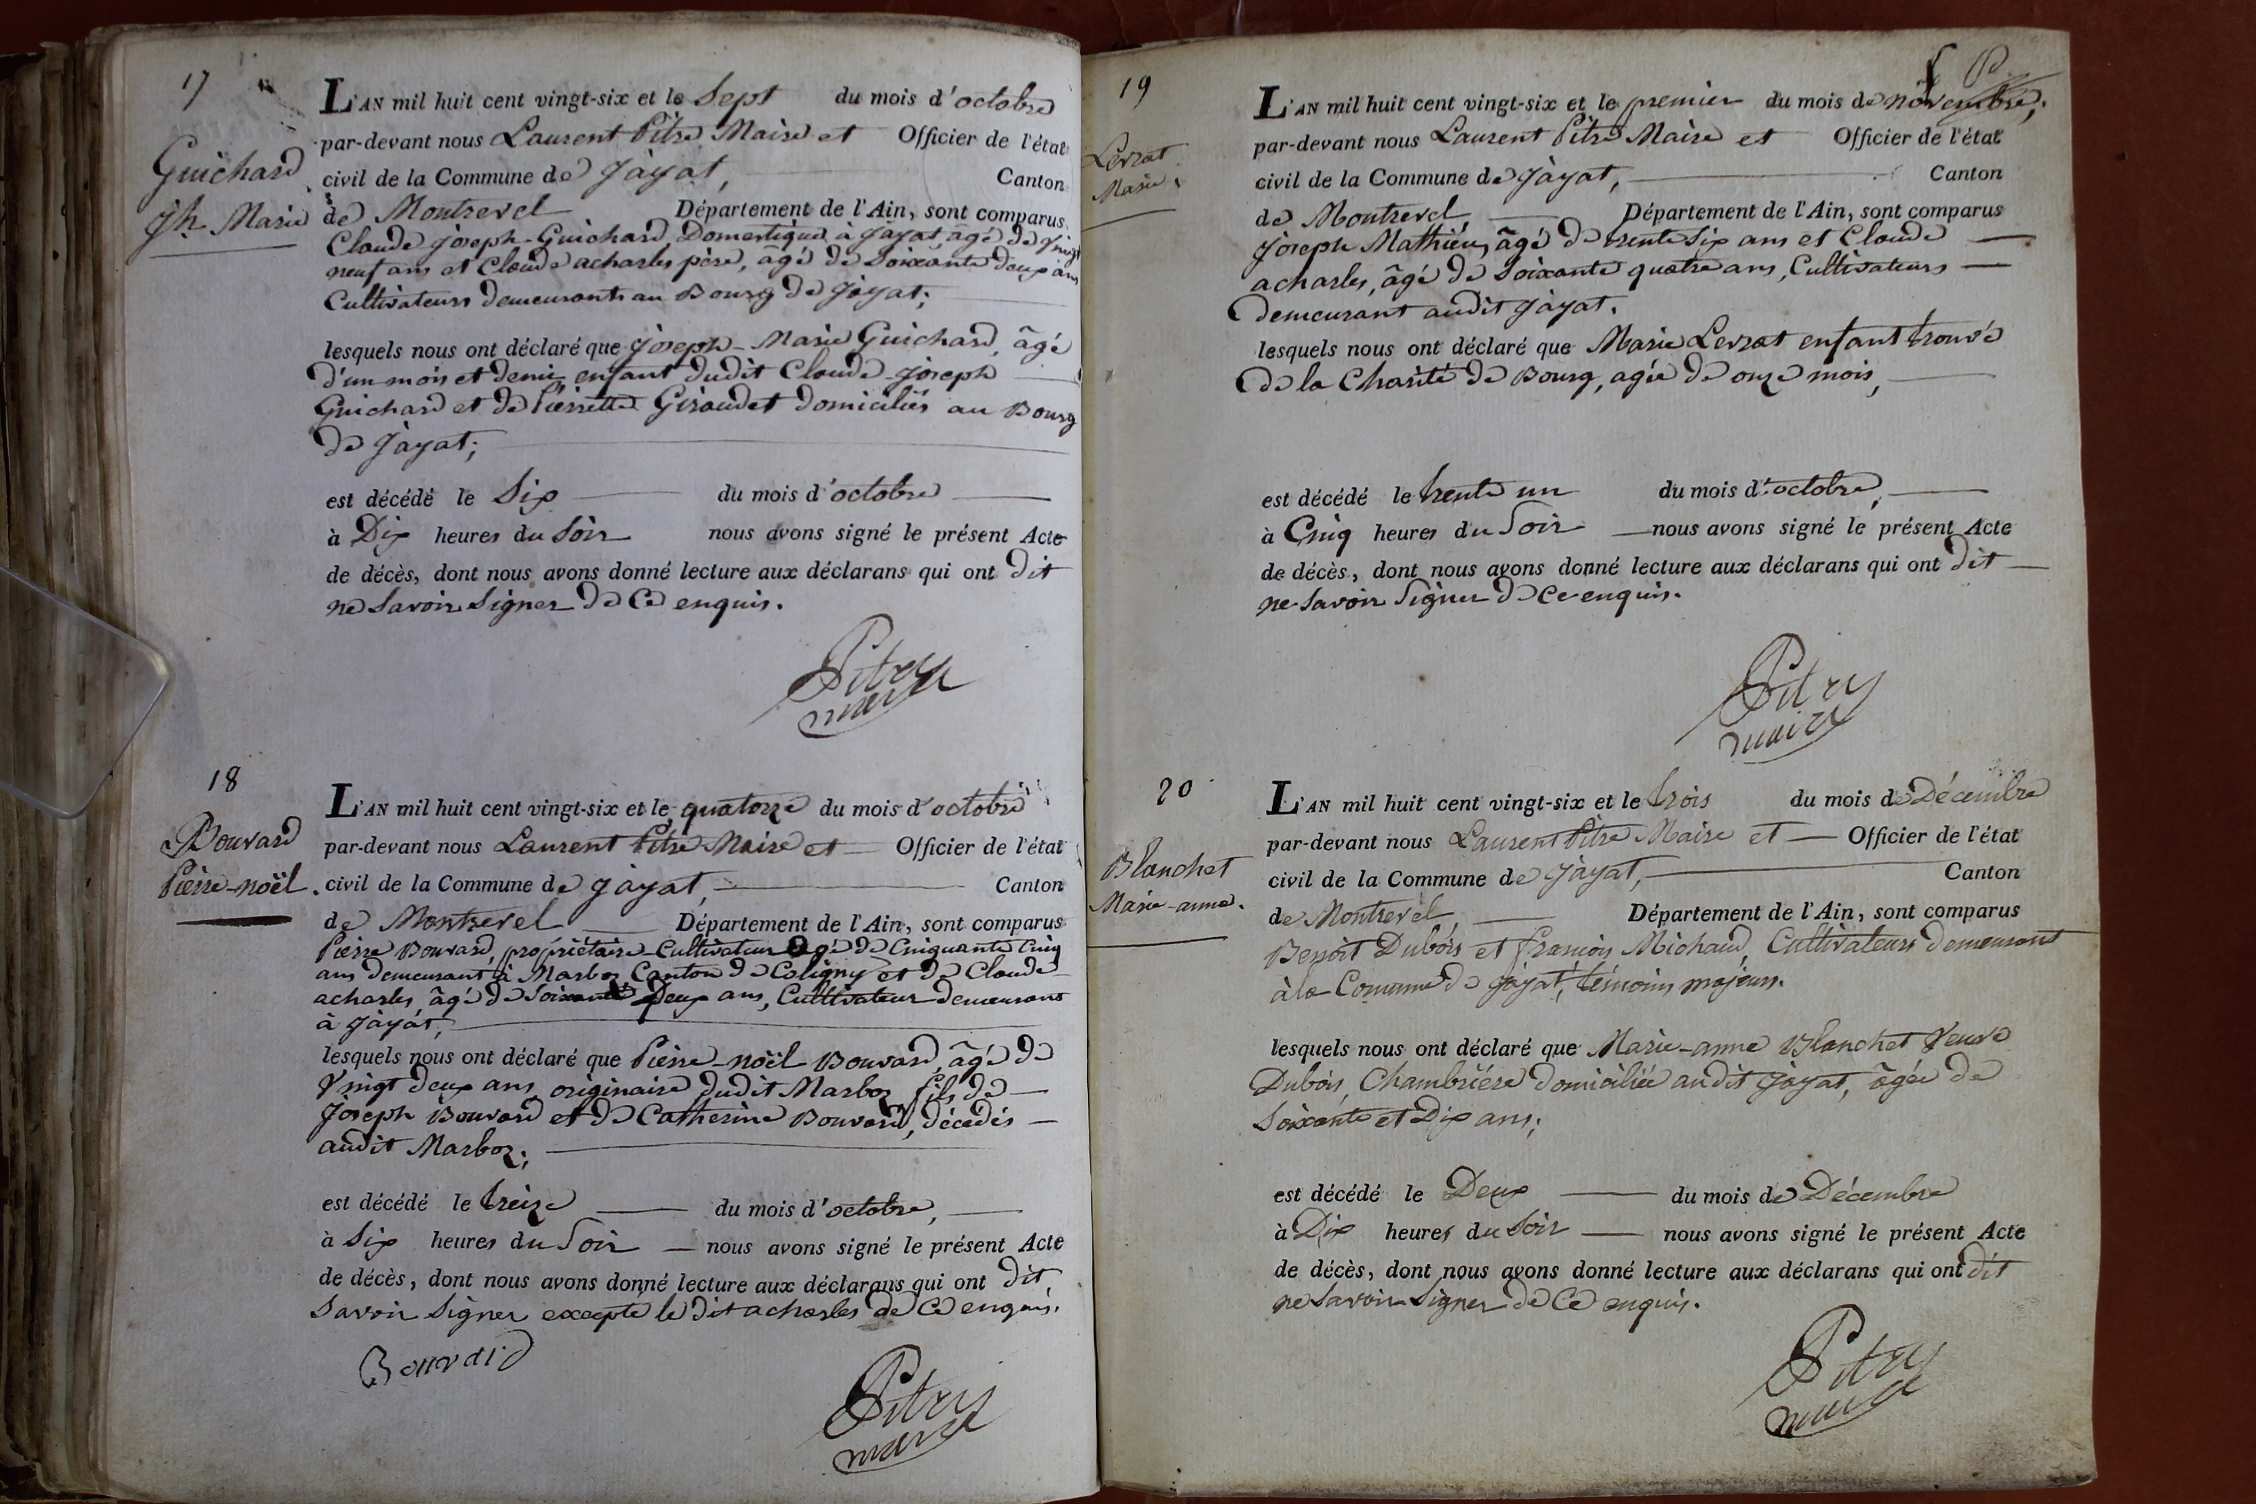 17
Guichard
Jh. Marie
L'AN mil huit cent vingt-six et le Sept du mois d'octobre
par-devant nous Laurent Pitre Maire et Officier de l'état
civil de la Commune de Jàyat, Canton
de Montrevel Département de l'Ain, sont comparus
Claude Joseph Guichard, Domestique à Jàyat, âgé de vingt
neuf ans et Claude acharles père, âgé de Soixante deux ans
Cultivateurs demeurants au Bourg de Jàyat;
lesquels nous ont déclaré que Joseph-Marie Guichard, âgé
d'un mois et demi, enfant dudit Claude-Joseph
Guichard et de Pierrette Giraudet domiciliés au Bourg
de Jàyat;
est décédé le Six du mois d'octobre
à Dix heures du Soir nous avons signé le présent Acte
de décès, dont nous avons donné lecture aux déclarans qui ont dit
ne Savoir Signer de Ce enquis.
Pitre
maire
18
Bouvard
Pierre-noël.
L'AN mil huit cent vingt-six et le quatorze du mois d'octobre
par-devant nous Laurent Pitre Maire et Officier de l'état
civil de la Commune de Jàyat, Canton
de Montrevel Département de l'Ain, sont comparus
Pierre Bouvard, propriétaire-Cultivateur âgé de Cinquante Cinq
ans demeurant à Marboz Canton de Coligny et de Claude
acharles âgé de Soixante Deux ans, Cultivateur demeurant
à Jàyat,
lesquels nous ont déclaré que Pierre-noël Bouvard, âgé de
Vingt deux ans, originaire dudit Marboz fils de
Joseph Bouvard et de Catherine Bouvard, décédés
audit Marboz;
est décédé le treize du mois d'octobre,
à Six heures du Soir nous avons signé le présent Acte
de décès, dont nous avons donné lecture aux déclarans qui ont dit
Savoir Signer excepté le dit acharles de Ce enquis.
Pitre
maire
19
Levrat
Marie.
L'AN mil huit cent vingt-six et le premier du mois de novembre,
par-devant nous Laurent Pitre Maire et Officier de l'état
civil de la Commune de Jàyat, Canton
de Montrevel, Département de l'Ain, sont comparus
Joseph Mathieu, âgé de trente Six ans et Claude
acharles, âgé de Soixante quatre ans, Cultivateurs
demeurant audit Jàyat.
lesquels nous ont déclaré que Marie Levrat enfant trouvé
de la Charité de Bourg, agée de onze mois,
est décédé le trente un du mois d'octobre,
à Cinq heures du Soir nous avons signé le présent Acte
de décès, dont nous avons donné lecture aux déclarans qui ont dit
ne Savoir Signer de Ce enquis.
Pitre
maire
20
Blanchet
Marie-anne.
L'AN mil huit cent vingt-six et le trois du mois de Décembre
par-devant nous Laurent Pitre Maire et Officier de l'état
civil de la Commune de Jàyat, Canton
de Montrevel, Département de l'Ain, sont comparus
Benoit Dubois et françois Michaud, Cultivateurs demeurant
à la Comune de Jàyat, témoins majeurs.
lesquels nous ont déclaré que Marie-anne Blanchet Veuve
Dubois, Chambrière domiciliée audit Jàyat, âgée de
Soixante et Dix ans;
est décédé le Deux du mois de Décembre
à Dix heures du Soir nous avons signé le présent Acte
de décès, dont nous avons donné lecture aux déclarans qui ont dit
ne Savoir Signer de Ce enquis.
Pitre
maire